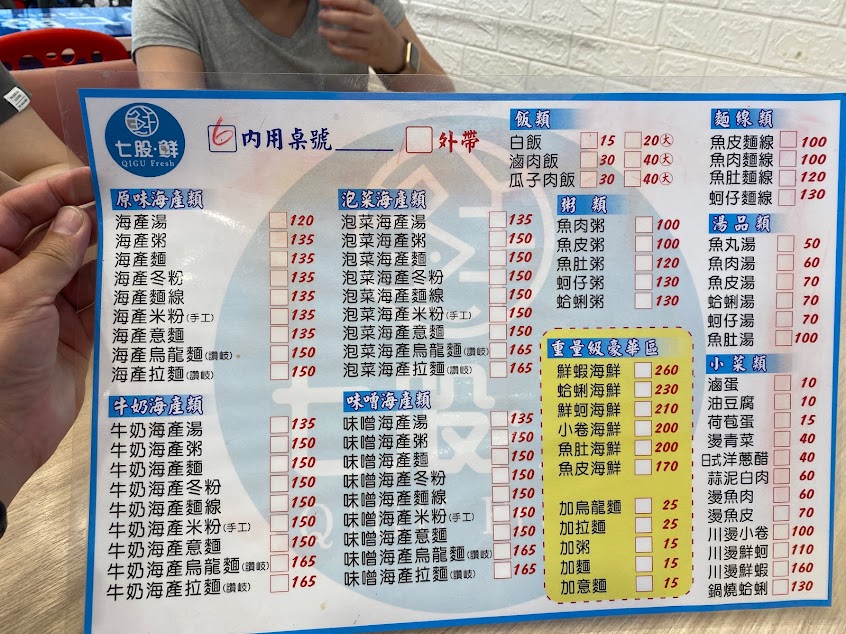 七股·鮮
QIGU Fresh
6 內用桌號 外帶
原味海產類
海產湯 120
海產粥 135
海產麵 135
海產冬粉 135
海產麵線 135
海產米粉(手工) 135
海產意麵 135
海產烏龍麵(讚岐) 150
海產拉麵(讚岐) 150
牛奶海產類
牛奶海產湯 135
牛奶海產粥 150
牛奶海產麵 150
牛奶海產冬粉 150
牛奶海產麵線 150
牛奶海產米粉(手工) 150
牛奶海產意麵 150
牛奶海產烏龍麵(讚岐) 165
牛奶海產拉麵(讚岐) 165
泡菜海產類
泡菜海產湯 135
泡菜海產粥 150
泡菜海產麵 150
泡菜海產冬粉 150
泡菜海產麵線 150
泡菜海產米粉(手工) 150
泡菜海產意麵 150
泡菜海產烏龍麵(讚岐) 165
泡菜海產拉麵(讚岐) 165
味噌海產類
味噌海產湯 135
味噌海產粥 150
味噌海產麵 150
味噌海產冬粉 150
味噌海產麵線 150
味噌海產米粉(手工) 150
味噌海產意麵 150
味噌海產烏龍麵(讚岐) 165
味噌海產拉麵(讚岐) 165
飯類
白飯 15 20大
滷肉飯 30 40大
瓜子肉飯 30 40大
粥類
魚肉粥 100
魚皮粥 100
魚肚粥 120
蚵仔粥 130
蛤蜊粥 130
重量級豪華區
鮮蝦海鮮 260
蛤蜊海鮮 230
鮮蚵海鮮 210
小卷海鮮 200
魚肚海鮮 200
魚皮海鮮 170
加烏龍麵 25
加拉麵 25
加粥 15
加麵 15
加意麵 15
麵線類
魚皮麵線 100
魚肉麵線 100
魚肚麵線 120
蚵仔麵線 130
湯品類
魚丸湯 50
魚肉湯 60
魚皮湯 70
蛤蜊湯 70
蚵仔湯 70
魚肚湯 100
小菜類
滷蛋 10
油豆腐 10
荷苞蛋 15
燙青菜 40
日式洋蔥醋 40
蒜泥白肉 60
燙魚肉 60
燙魚皮 70
川燙小卷 100
川燙鮮蚵 110
川燙鮮蝦 160
鍋燒蛤蜊 130